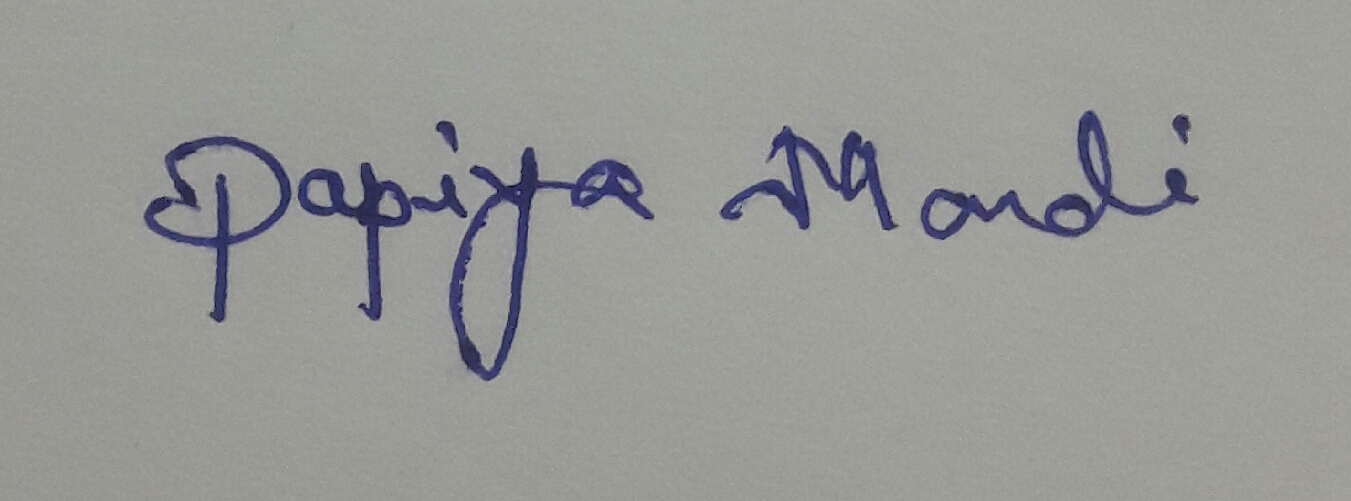 Papiya Mandi